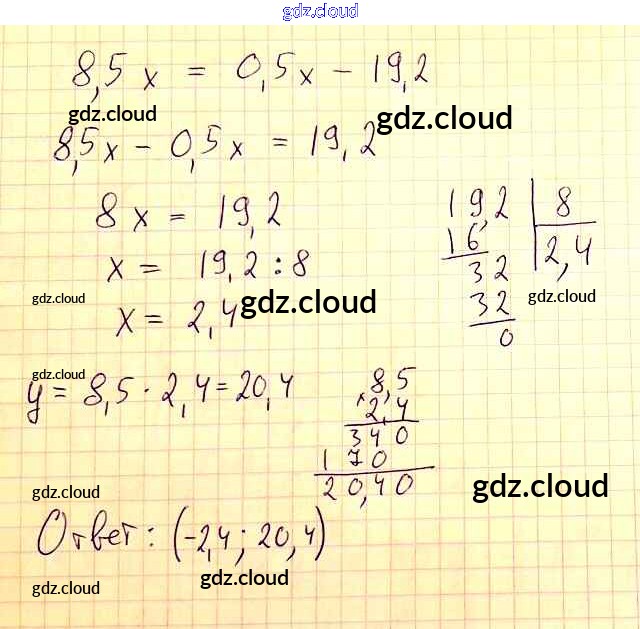 gdz.cloud
8,5x = 0,5x - 19,2
gdz.cloud gdz.cloud
8,5x - 0,5x = 19,2
8x = 19,2
19,2 | 8
16 2,4
x = 19,2 : 8
32
gdz.cloud gdz.cloud gdz.cloud
x = 2,4
32
0
gdz.cloud
y = 8,5 · 2,4 = 20,4
8,5
× 2,4
340
170
20,40
gdz.cloud gdz.cloud
Ответ: (-2,4; 20,4)
gdz.cloud gdz.cloud